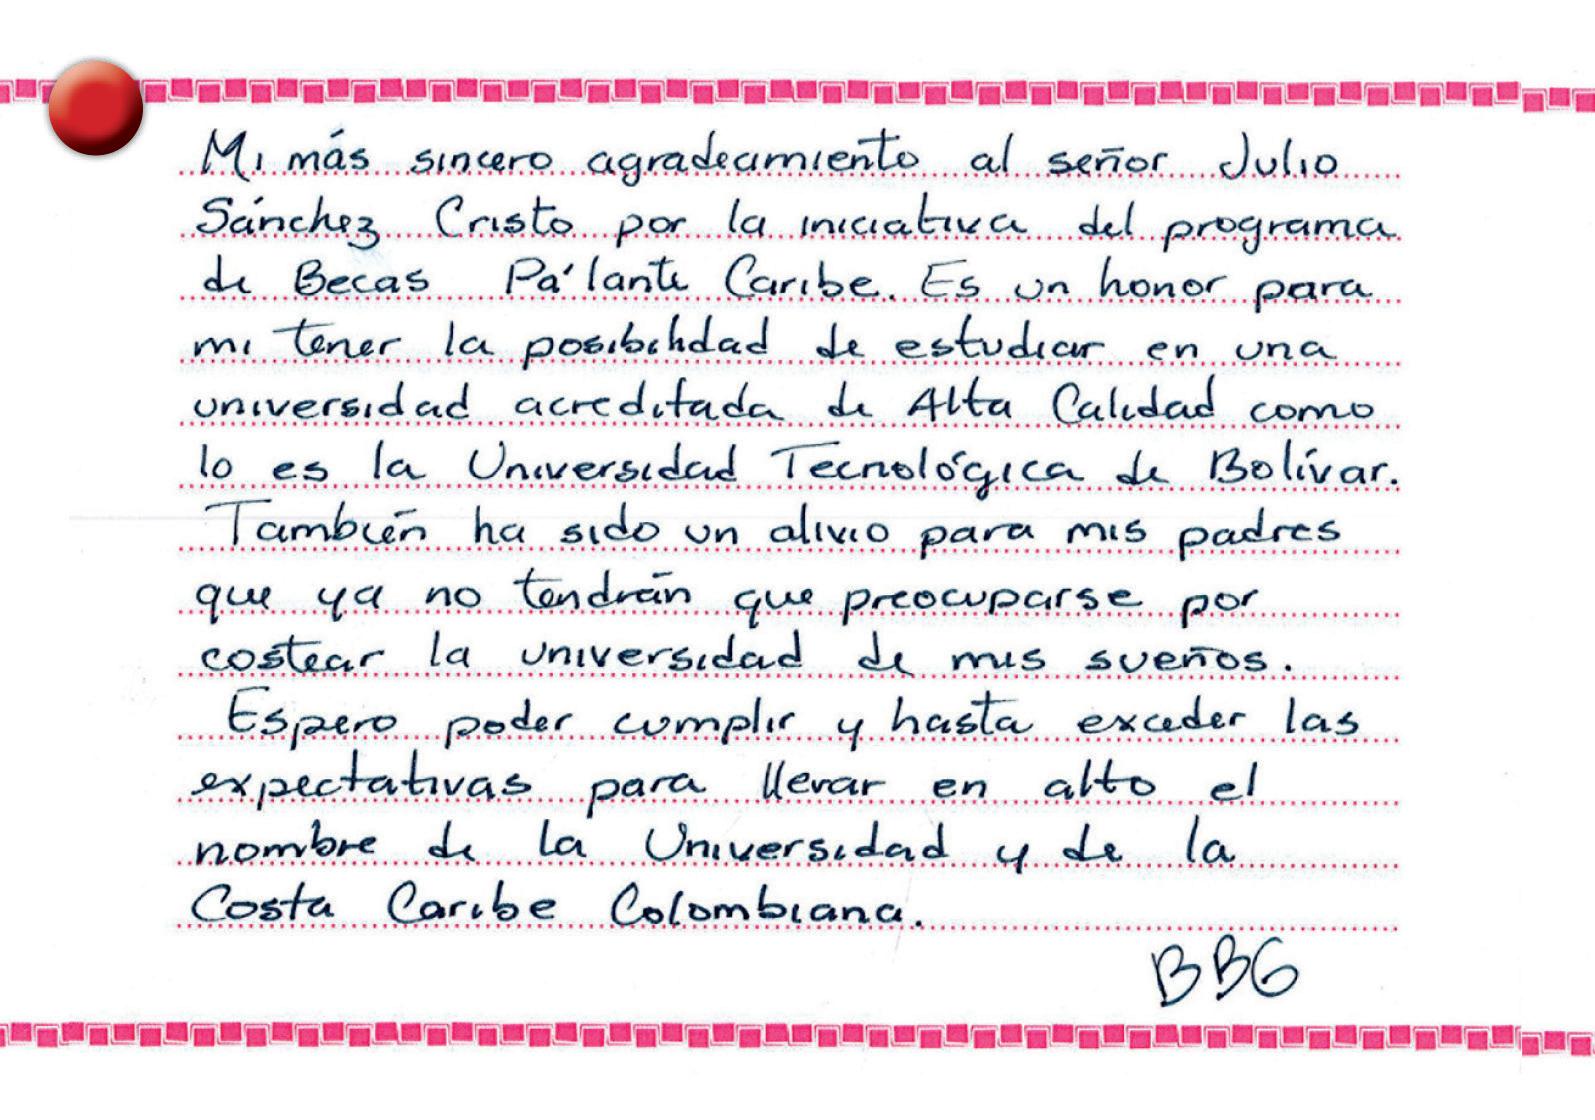 Mi más sincero agradecimiento al señor Julio
Sánchez Cristo por la iniciativa del programa
de Becas Pa'lante Caribe. Es un honor para
mi tener la posibilidad de estudiar en una
universidad acreditada de Alta Calidad como
lo es la Universidad Tecnológica de Bolívar.
También ha sido un alivio para mis padres
que ya no tendrán que preocuparse por
costear la universidad de mis sueños.
Espero poder cumplir y hasta exceder las
expectativas para llevar en alto el
nombre de la Universidad y de la
Costa Caribe Colombiana.
BBG